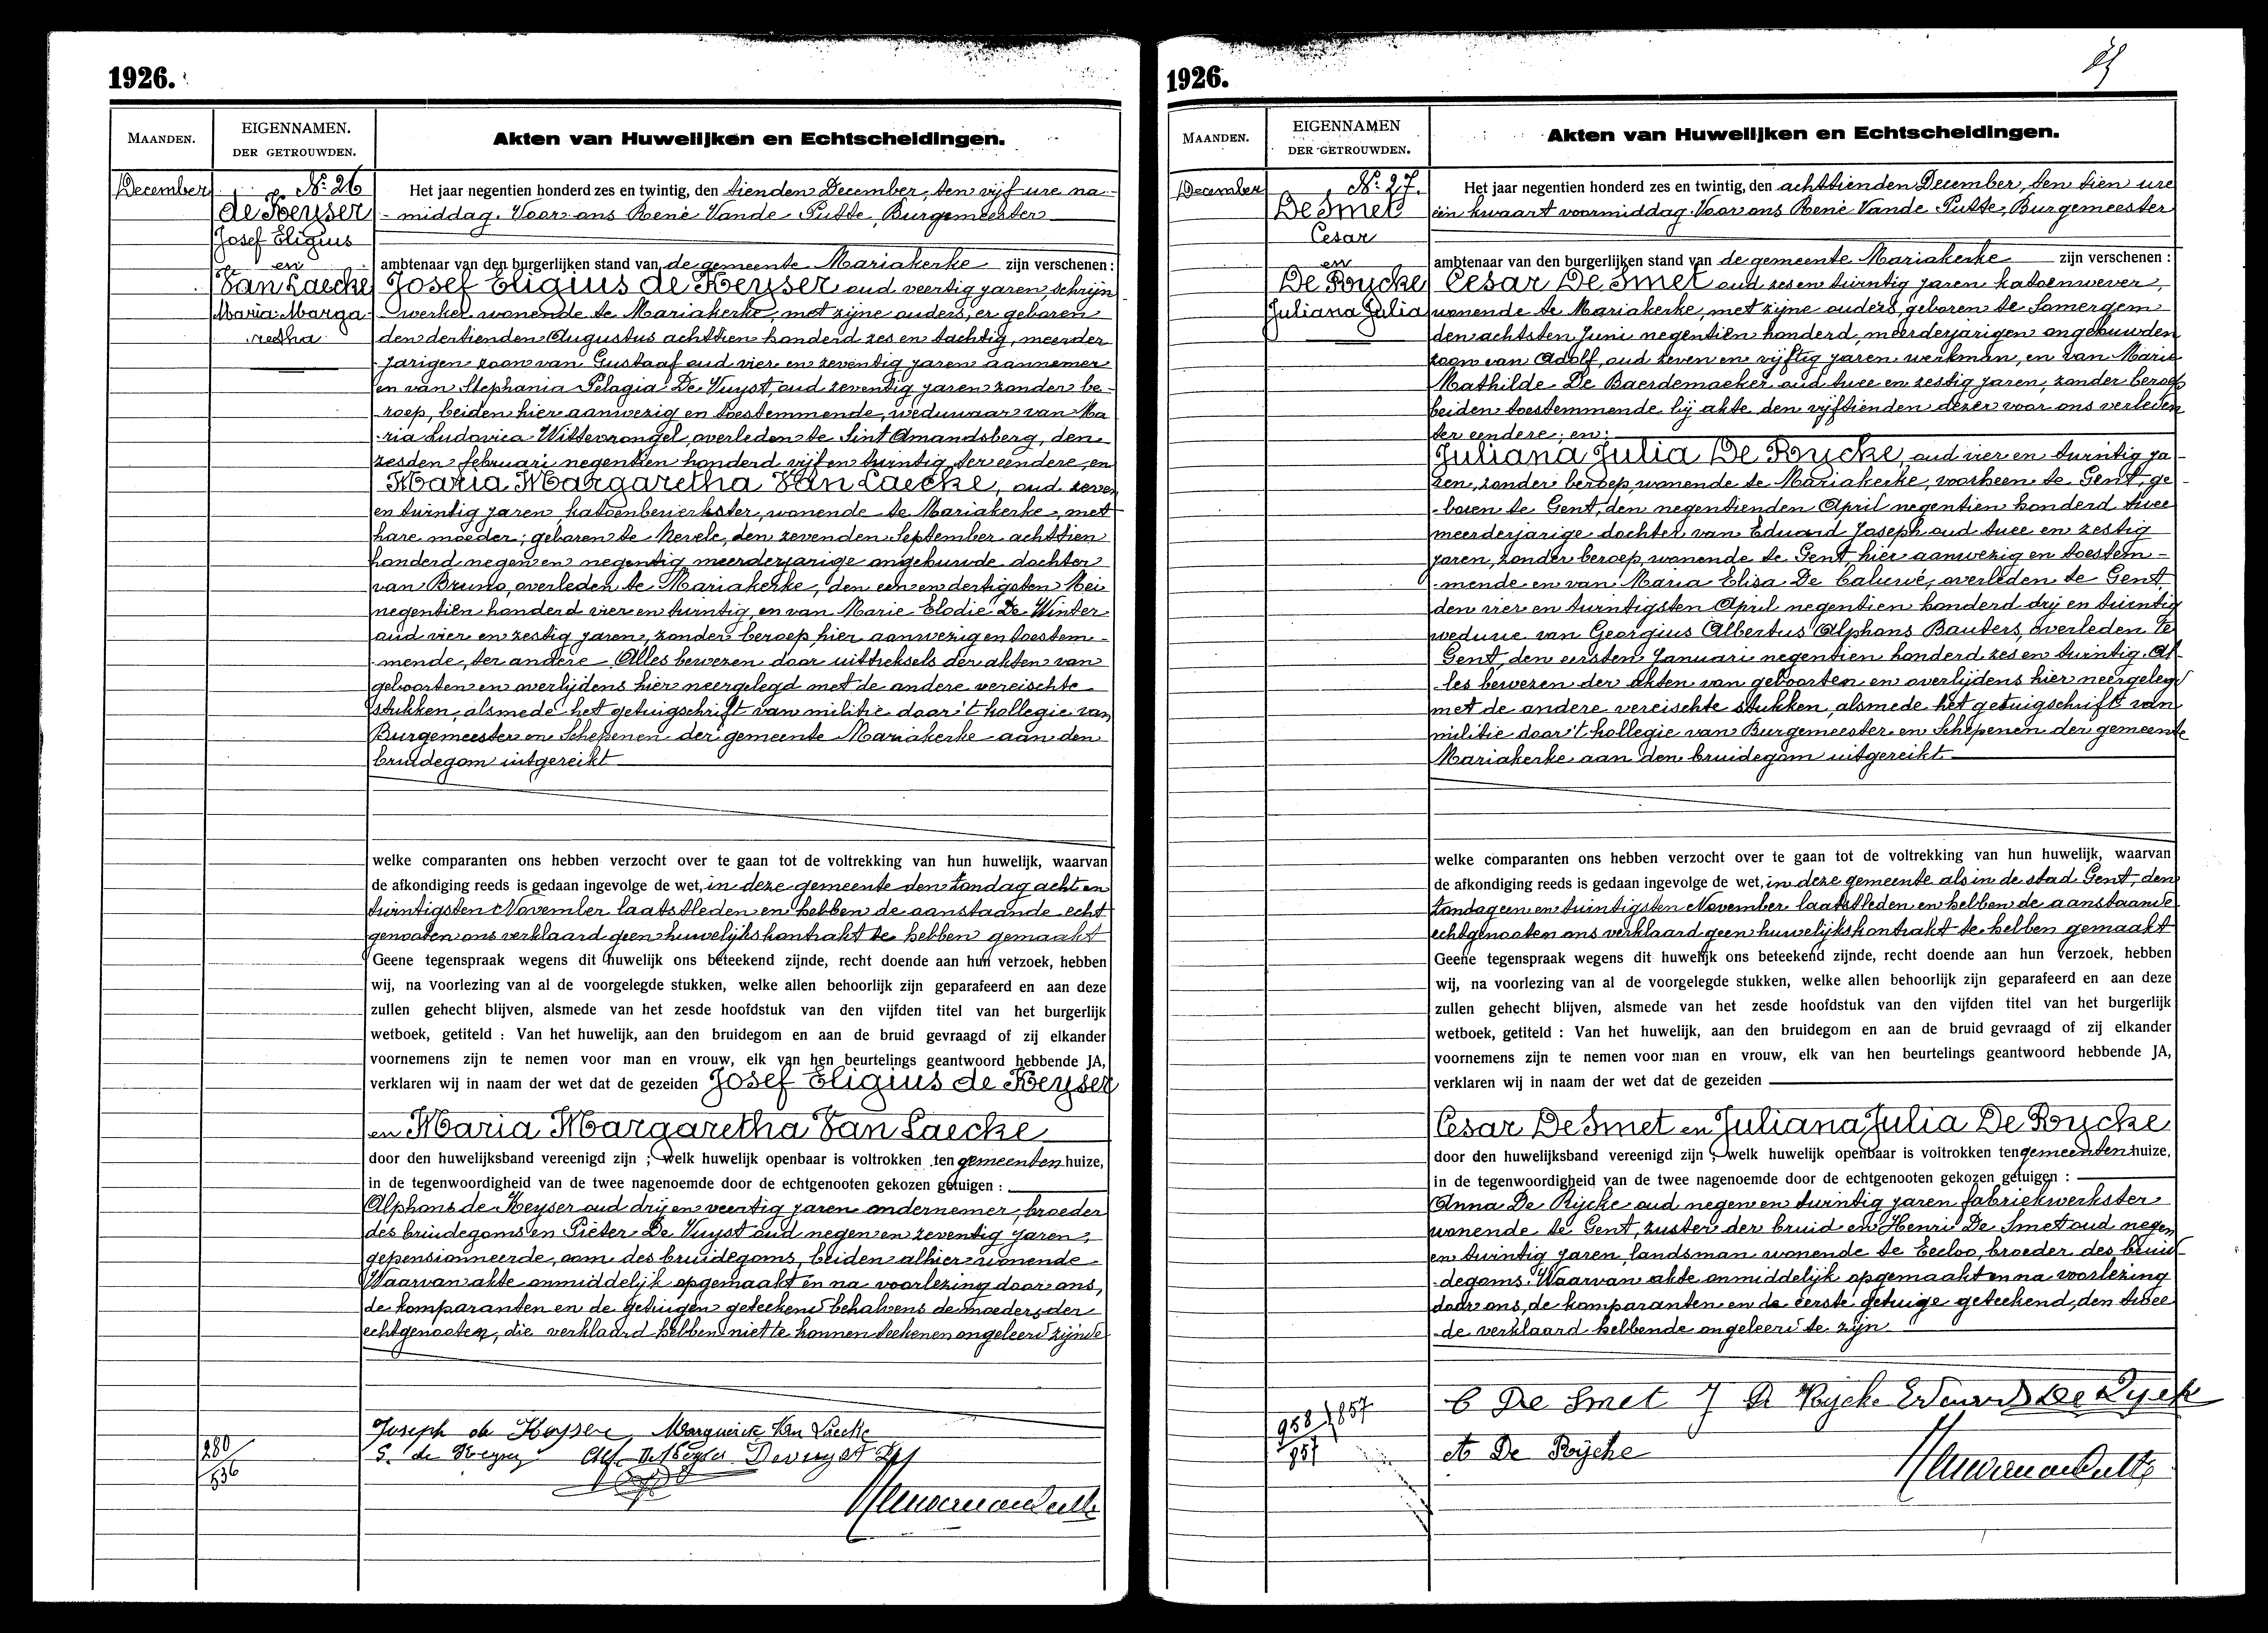 1926.
MAANDEN.
EIGENNAMEN.
DER GETROUWDEN.
Akten van Huwelijken en Echtscheidingen.
December
No 26
de Keyser
Josef Eligius
en
Van Laecke
Maria Marga
retha
Het jaar negentien honderd zes en twintig, den tienden December, ten vijf ure na-
-middag. Voor ons René Vande Putte, Burgemeester
ambtenaar van den burgerlijken stand van de gemeente Mariakerke zijn verschenen :
Josef Eligius de Keyser oud veertig jaren, schrijn
werker wonende te Mariakerke, met zijne ouders, er geboren
den dertienden Augustus achttien honderd zes en tachtig, meerder
jarigen zoon van Gustaaf oud vier en zeventig jaren aannemer
en van Stephania Pelagia De Vuyst, oud zeventig jaren zonder be-
roep, beiden hier aanwezig en toestemmende, weduwaar van Ma
ria Ludovica Wittevrongel, overleden te Sint Amandsberg, den
zesden februari negentien honderd vijf en twintig, ter eendere, en
Maria Margaretha Van Laecke, oud zeven
en twintig jaren, katoenbewerkster, wonende te Mariakerke, met
hare moeder; geboren te Nevele, den zevenden September achttien
honderd negen en negentig meerderjarige ongehuwde dochter
van Bruno, overleden te Mariakerke, den een en dertigsten Mei
negentien honderd vier en twintig, en van Marie Elodie De Winter
oud vier en zestig jaren, zonder beroep, hier aanwezig en toestem-
mende, ter andere. Alles bewezen door uittreksels der akten van
geboorten en overlijdens hier neergelegd met de andere vereischte
stukken, alsmede het getuigschrift van militie door 't kollegie van
Burgemeester en Schepenen der gemeente Mariakerke aan den
bruidegom uitgereikt
welke comparanten ons hebben verzocht over te gaan tot de voltrekking van hun huwelijk, waarvan
de afkondiging reeds is gedaan ingevolge de wet, in deze gemeente den Zondag acht en
twintigsten November laatstleden en hebben de aanstaande echt
genooten ons verklaard geen huwelijkskontrakt te hebben gemaakt
Geene tegenspraak wegens dit huwelijk ons beteekend zijnde, recht doende aan hun verzoek, hebben
wij, na voorlezing van al de voorgelegde stukken, welke allen behoorlijk zijn geparafeerd en aan deze
zullen gehecht blijven, alsmede van het zesde hoofdstuk van den vijfden titel van het burgerlijk
wetboek, getiteld : Van het huwelijk, aan den bruidegom en aan de bruid gevraagd of zij elkander
voornemens zijn te nemen voor man en vrouw, elk van hen beurtelings geantwoord hebbende JA,
verklaren wij in naam der wet dat de gezeiden Josef Eligius de Keyser
en Maria Margaretha Van Laecke
door den huwelijksband vereenigd zijn ; welk huwelijk openbaar is voltrokken ten gemeentenhuize,
in de tegenwoordigheid van de twee nagenoemde door de echtgenooten gekozen getuigen :
Alphons de Keyser oud drij en veertig jaren ondernemer, broeder
des bruidegoms en Pieter De Vuyst oud negen en zeventig jaren,
gepensionneerde, oom des bruidegoms, beiden alhier wonende
Waarvan akte onmiddelijk opgemaakt en na voorlezing door ons,
de komparanten en de getuigen geteekend behalvens de moeders der
echtgenooten, die verklaard hebben niet te konnen teekenen ongeleerd zijnde
Joseph de Keyser Marguerite Van Laecke
G. de Keyser Alf. De Keyser Devuyst
280
536
1926.
MAANDEN.
EIGENNAMEN
DER GETROUWDEN.
Akten van Huwelijken en Echtscheidingen.
December
No 27.
De Smet
Cesar
en
De Rycke
Juliana Julia
Het jaar negentien honderd zes en twintig, den achttienden December, ten tien ure
een kwaart voormiddag. Voor ons René Vande Putte, Burgemeester
ambtenaar van den burgerlijken stand van de gemeente Mariakerke zijn verschenen :
Cesar De Smet oud zes en twintig jaren katoenwever,
wonende te Mariakerke, met zijne ouders, geboren te Somergem
den achtsten Juni negentien honderd, meerderjarigen ongehuwden
zoon van Adolf, oud zeven en vijftig jaren werkman, en van Marie
Mathilde De Baerdemaeker oud twee en zestig jaren, zonder beroep
beiden toestemmende bij akte den vijftienden dezer voor ons verleden
ter eendere; en:
Juliana Julia De Rycke, oud vier en twintig ja-
ren, zonder beroep, wonende te Mariakerke, voorheen te Gent, ge-
boren te Gent, den negentienden April negentien honderd twee
meerderjarige dochter van Eduard Joseph oud twee en zestig
jaren, zonder beroep, wonende te Gent, hier aanwezig en toestem-
mende en van Maria Elisa De Caluwé, overleden te Gent
den vier en twintigsten April negentien honderd drij en twintig
weduwe van Georgius Albertus Alphons Bauters, overleden te
Gent, den eersten Januari negentien honderd zes en twintig. Al-
les bewezen der akten van geboorten en overlijdens hier neergelegd
met de andere vereischte stukken, alsmede het getuigschrift van
militie door 't kollegie van Burgemeester en Schepenen der gemeente
Mariakerke aan den bruidegom uitgereikt
welke comparanten ons hebben verzocht over te gaan tot de voltrekking van hun huwelijk, waarvan
de afkondiging reeds is gedaan ingevolge de wet, in deze gemeente als in de stad Gent, den
Zondag een en twintigsten November laatstleden en hebben de aanstaande
echtgenooten ons verklaard geen huwelijkskontrakt te hebben gemaakt
Geene tegenspraak wegens dit huwelijk ons beteekend zijnde, recht doende aan hun verzoek, hebben
wij, na voorlezing van al de voorgelegde stukken, welke allen behoorlijk zijn geparafeerd en aan deze
zullen gehecht blijven, alsmede van het zesde hoofdstuk van den vijfden titel van het burgerlijk
wetboek, getiteld : Van het huwelijk, aan den bruidegom en aan de bruid gevraagd of zij elkander
voornemens zijn te nemen voor man en vrouw, elk van hen beurtelings geantwoord hebbende JA,
verklaren wij in naam der wet dat de gezeiden
Cesar De Smet en Juliana Julia De Rycke
door den huwelijksband vereenigd zijn ; welk huwelijk openbaar is voltrokken ten gemeentenhuize,
in de tegenwoordigheid van de twee nagenoemde door de echtgenooten gekozen getuigen :
Anna De Rijcke oud negen en twintig jaren fabriekwerkster
wonende te Gent, zuster der bruid en Henri De Smet oud negen
en twintig jaren, landsman wonende te Eecloo, broeder des bruid-
degoms. Waarvan akte onmiddelijk opgemaakt en na voorlezing
door ons, de komparanten en de eerste getuige geteekend, den twee
de verklaard hebbende ongeleerd te zijn
C De Smet J De Rycke Eduard De Rycke
A De Rijcke
958 / 857
957